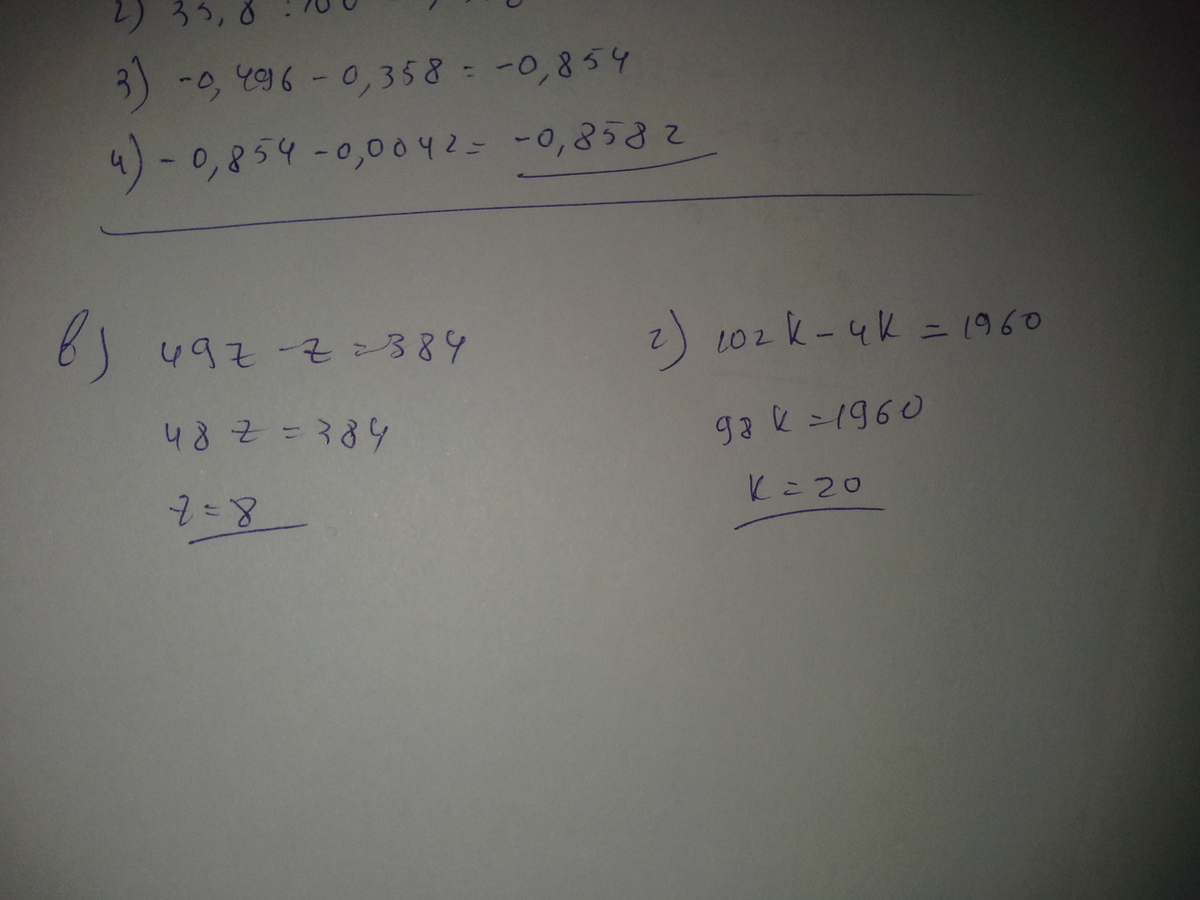 2) 35,8 : 100
3) -0,496 - 0,358 = -0,854
4) -0,854 - 0,0042 = -0,8582
в) 49z - z = 384
48z = 384
z = 8
г) 102k - 4k = 1960
98k = 1960
k = 20